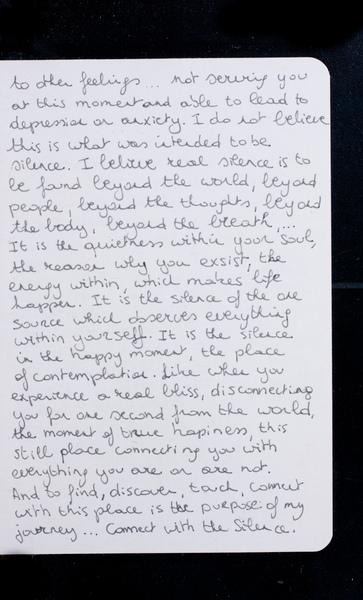 to other feelings... not serving you
at this moment and able to lead to
depression or anxiety. I do not believe
this is what was intended to be
silence. I believe real silence is to
be found beyond the world, beyond
people, beyond the thoughts, beyond
the body, beyond the breath,...
It is the quietness within your soul,
the reason why you exsist, the
energy within, which makes life
happen. It is the silence of the one
source which observes everything
within yourself. It is the silence
in the happy moment, the place
of contemplation. Like when you
experience a real bliss, disconnecting
you for one second from the world,
the moment of true hapiness, this
still place connecting you with
everything you are or are not.
And to find, discover, touch, connect
with this place is the purpose of my
journey... Connect with the Silence.